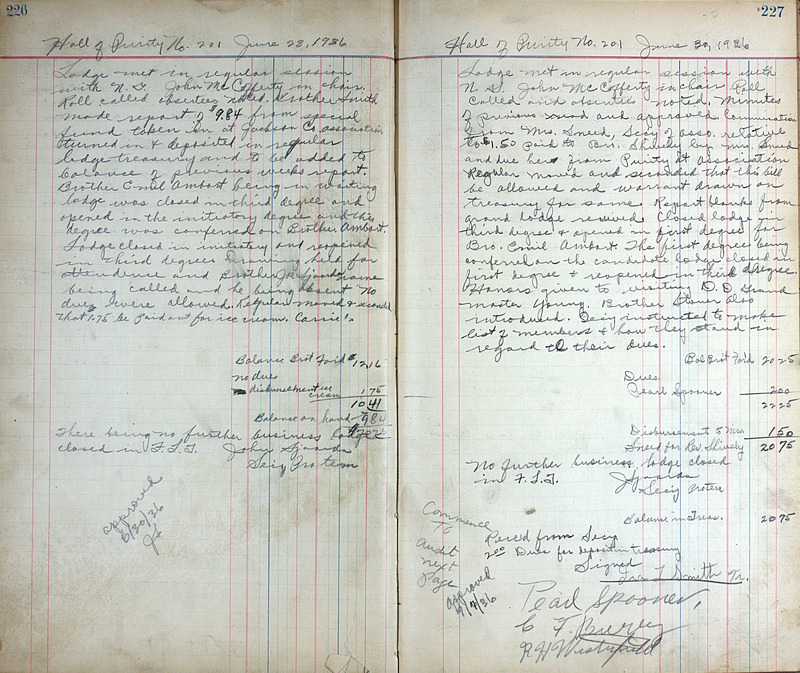 226
Hall of Purity No. 201 June 23, 1936
Lodge met in regular session
with N. G. John McCafferty in chair.
Roll called absentees noted. Brother Smith
made report of $9.84 from special
fund taken in at Jackson Co association
turned in & deposited in regular
lodge treasury and to be added to
balance of previous weeks report.
Brother Emil Ambort being in waiting
lodge was closed in third degree and
opened in the initiatory degree and this
degree was conferred on Brother Ambort.
Lodge closed in initiatory and reopened
in third degree. Drawing held for
attendence and Brother name
being called and he being absent no
dues were allowed. Regular moved & seconded
that 1.75 be paid out for ice cream. Carried.
Balance Brot Ford $12.16
no dues
disbursement ice cream 1.75
10 41
Balance on hand 9 84
There being no further business lodge
closed in F. L. T. John
Secy Pro tem
approved
6/30/36
227
Hall of Purity No. 201 June 30, 1936
Lodge met in regular session with
N. G. John McCafferty in chair. Roll
called and absentees noted. Minutes
of previous read and approved. Communication
from Mrs. Sneed, Secy of asso. relative
to $1.50 paid to Bro. Shively by Mrs. Sneed
and due her from Purity at Association
Regular moved and seconded that this bill
be allowed and warrant drawn on
treasury for same. Report blanks from
grand lodge received. Closed lodge in
third degree & opened in first degree for
Bro. Emil Ambort. The first degree being
conferred on the candidate lodge closed in
first degree & reopened in third degree.
Honors given to visiting D. D. Grand
master Young. Brother also
introduced. Secy instructed to make
list of members & how they stand in
regard to their dues.
Bal Brot Ford 20 25
Dues
Pearl Spooner 2 00
22 25
Disbursement to Mrs. 1 50
Sneed for Rev. Shively 20 75
No further business, lodge closed
in F. L. T.
Secy Protem
Balance in Treas. 20 75
Commence
To
Audit
next
Page
Recd from Secy
2.00 Dues for deposit in treasury
Signed
Smith Tr.
approved
Pearl Spooner,
C F
R H Westerfield